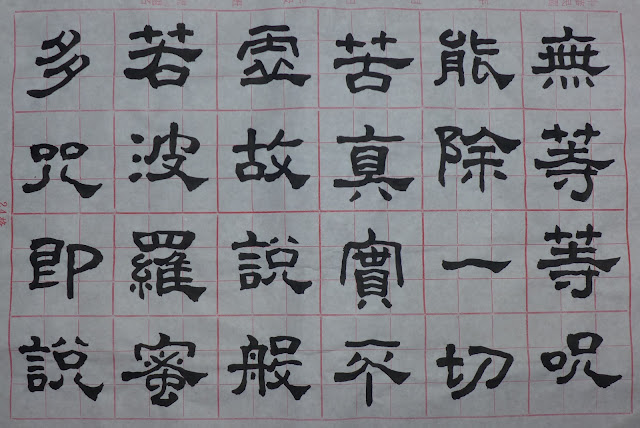 無等等呪
能除一切
苦真實不
虛故說般
若波羅蜜
多咒即說